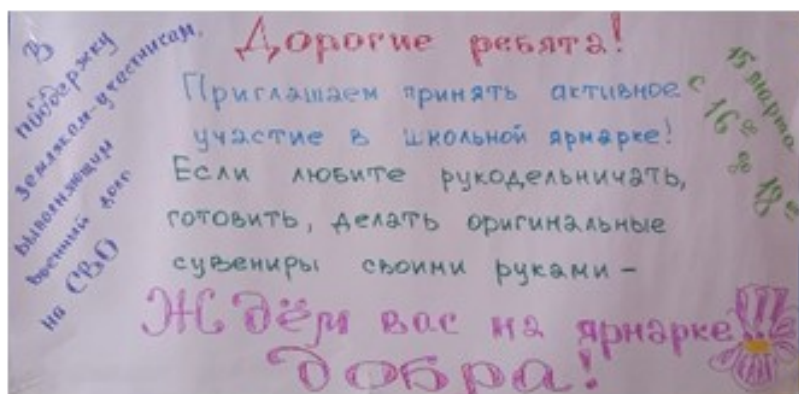 В
поддержку
землякам-участникам,
выполняющим
военный долг
на СВО
Дорогие ребята!
Приглашаем принять активное
участие в школьной ярмарке!
Если любите рукодельничать,
готовить, делать оригинальные
сувениры своими руками –
Ждём вас на ярмарке
добра!
15 марта
с 16 00
до 18 00